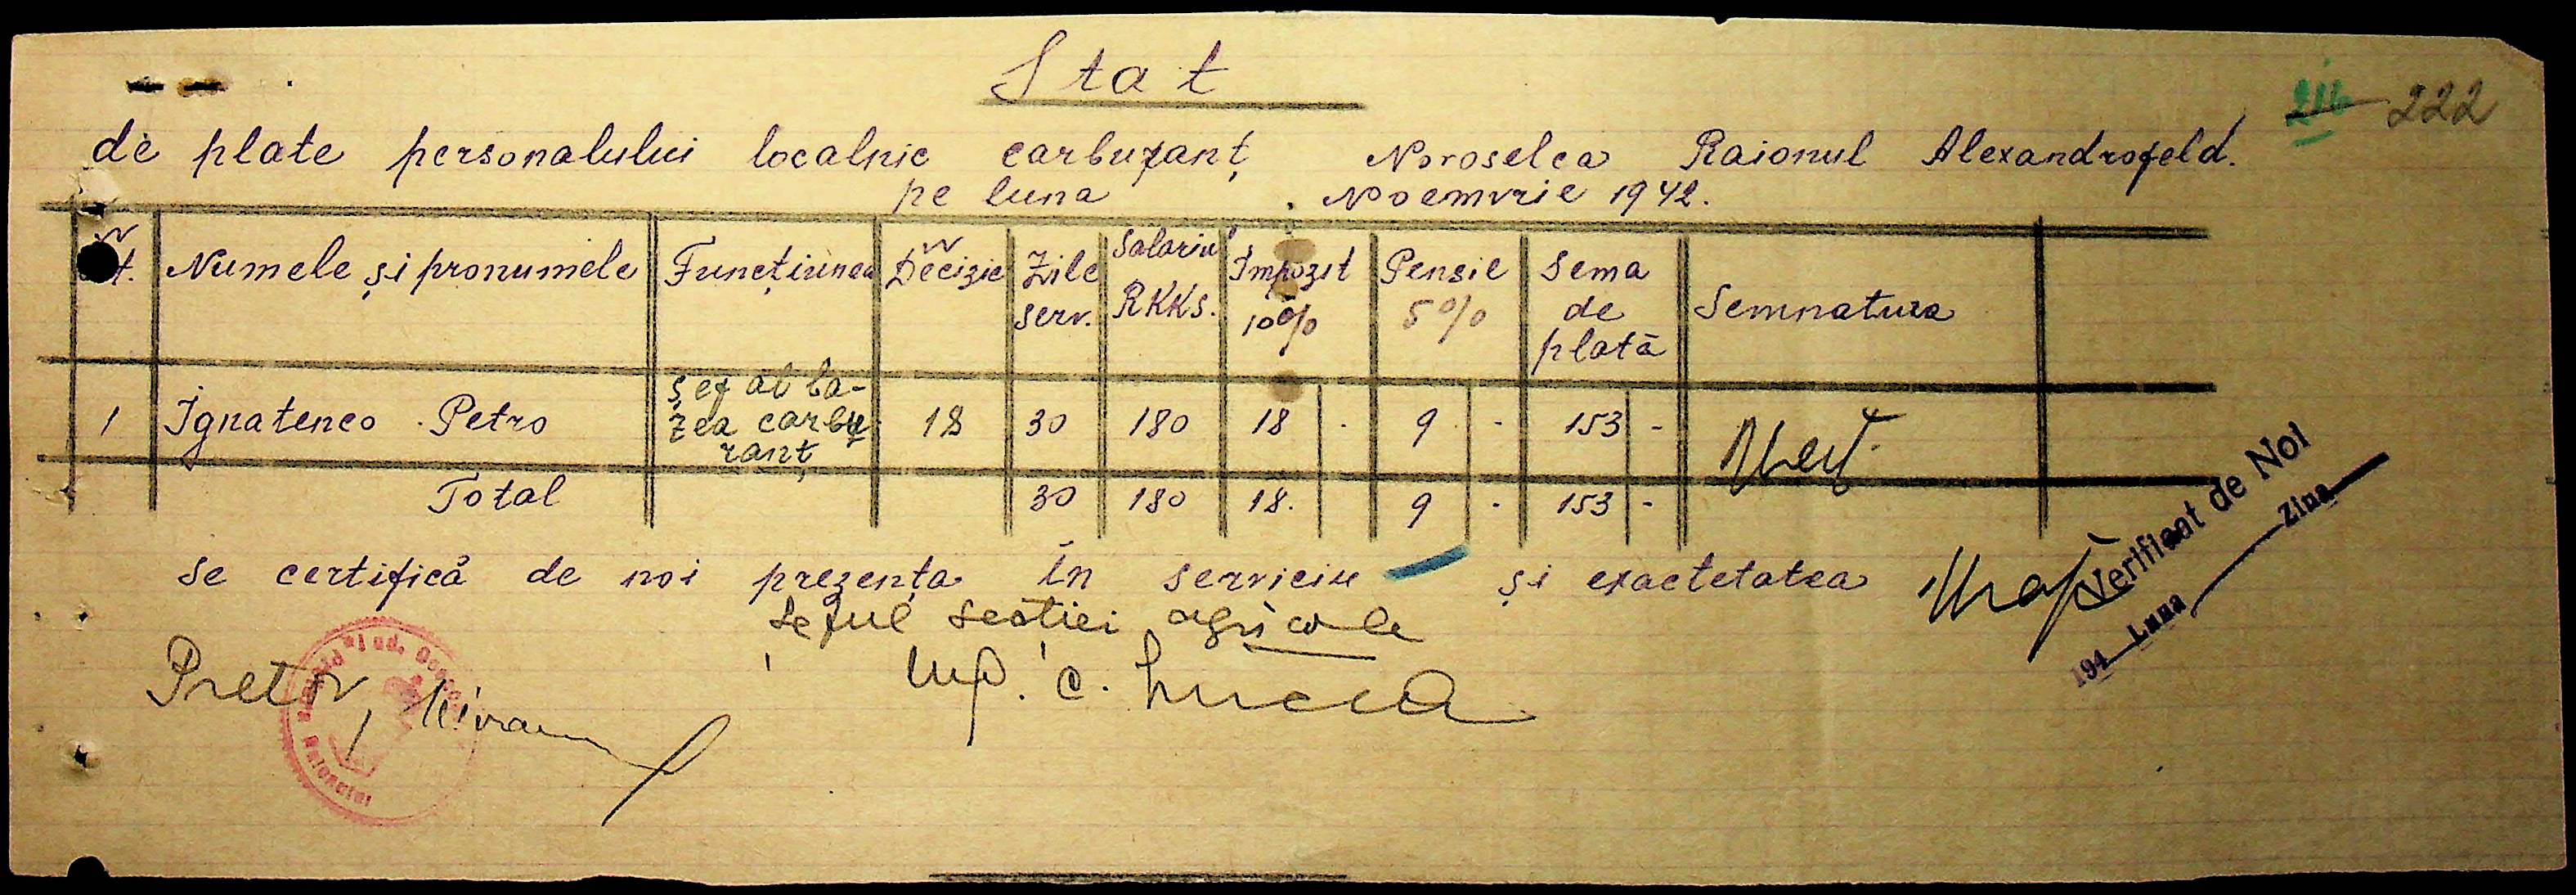 Stat
216 222
de plate personalului localnic carburanț Novoselca Raionul Alexandrofeld.
pe luna Noemvrie 1942.
Numele și pronumele Funcțiunea Decizie Zile serv. Salariu RKKS. Impozit 10% Pensie 5% Sema de plată Semnatura
1 Ignatenco Petro șef al bazea carburanț 18 30 180 18 - 9 - 153 -
Total 30 180 18. 9 - 153 -
Se certifică de noi prezența în serviciu și exactetatea
Șeful secției agricole
Pretor
Verificat de Noi
194 Luna Ziua